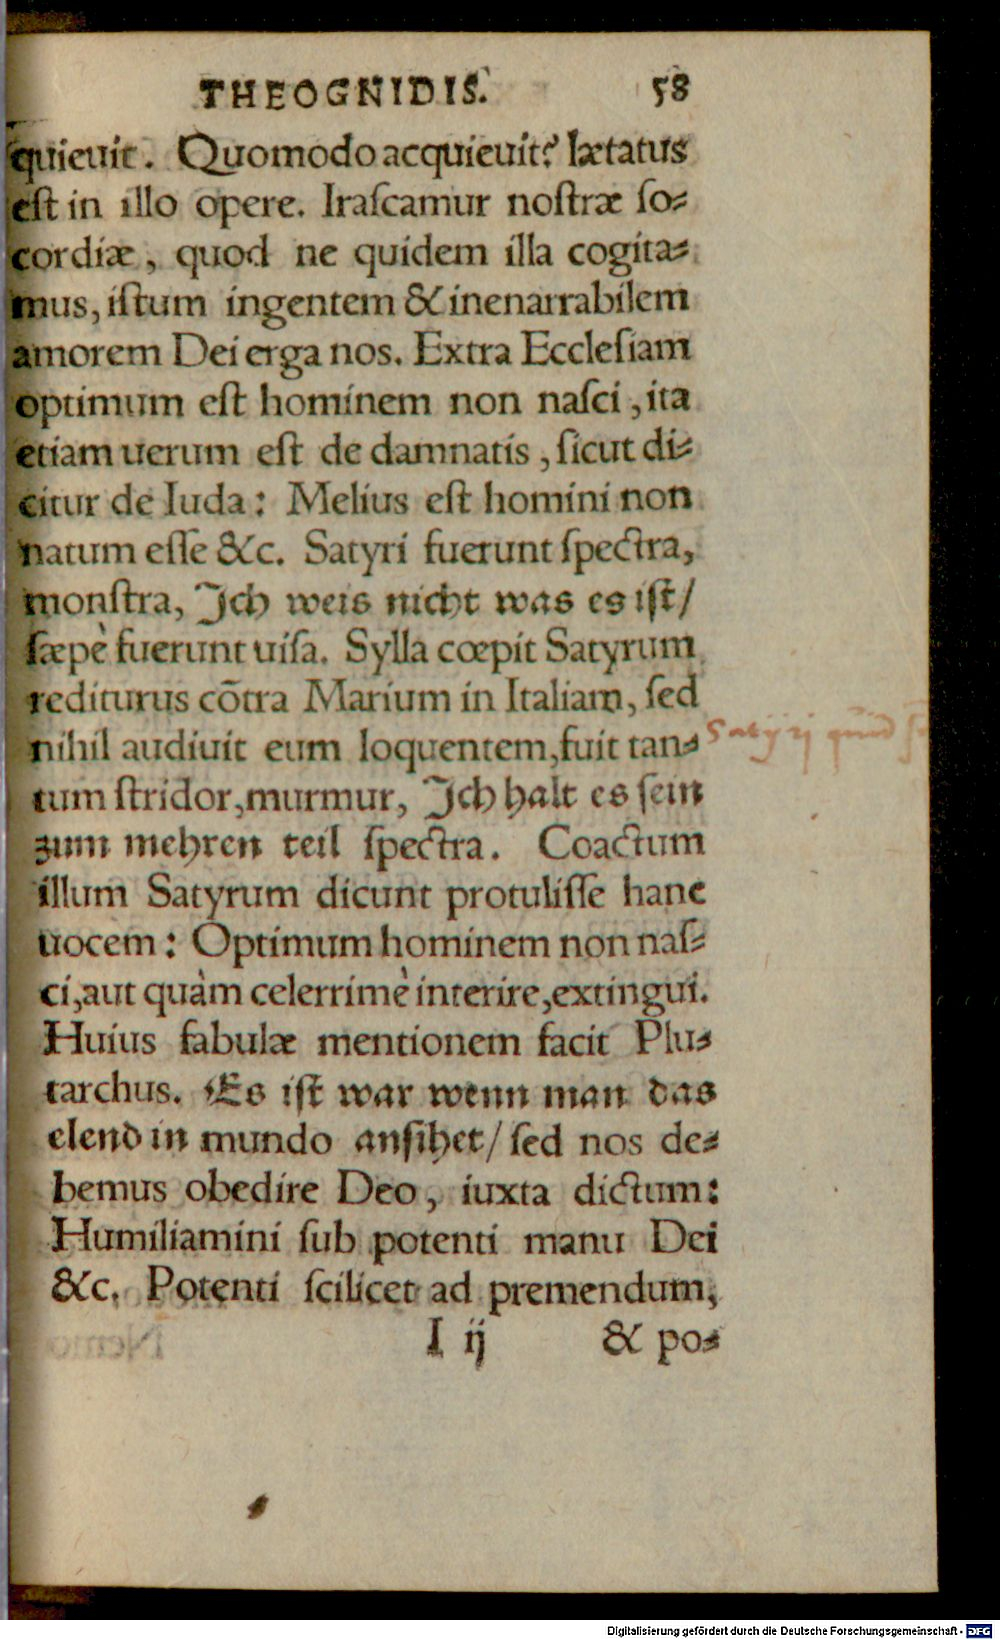 THEOGNIDIS. 58
quieuit. Quomodo acquieuit? lætatus
eſt in illo opere. Iraſcamur noſtræ ſo⸗
cordiæ, quod ne quidem illa cogita⸗
mus, iſtum ingentem & inenarrabilem
amorem Dei erga nos. Extra Eccleſiam
optimum eſt hominem non naſci, ita
etiam uerum eſt de damnatis, ſicut di⸗
citur de Iuda: Melius eſt homini non
natum eſſe &c. Satyri fuerunt ſpectra,
monſtra, Jch weis nicht was es iſt/
ſæpè fuerunt uiſa. Sylla cœpit Satyrum
rediturus cōtra Marium in Italiam, ſed
nihil audiuit eum loquentem, fuit tan⸗
Satyri quid
tum ſtridor, murmur, Jch halt es ſein
zum mehren teil ſpectra. Coactum
illum Satyrum dicunt protuliſſe hanc
uocem: Optimum hominem non naſ⸗
ci, aut quàm celerrimè interire, extingui.
Huius fabulæ mentionem facit Plu⸗
tarchus. Es iſt war wenn man das
elend in mundo anſihet/ ſed nos de⸗
bemus obedire Deo, iuxta dictum:
Humiliamini ſub potenti manu Dei
&c. Potenti ſcilicet ad premendum,
I ij & po⸗
Digitalisierung gefördert durch die Deutsche Forschungsgemeinschaft - DFG